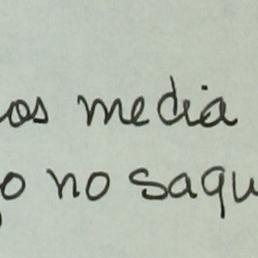 os media
o no saqu